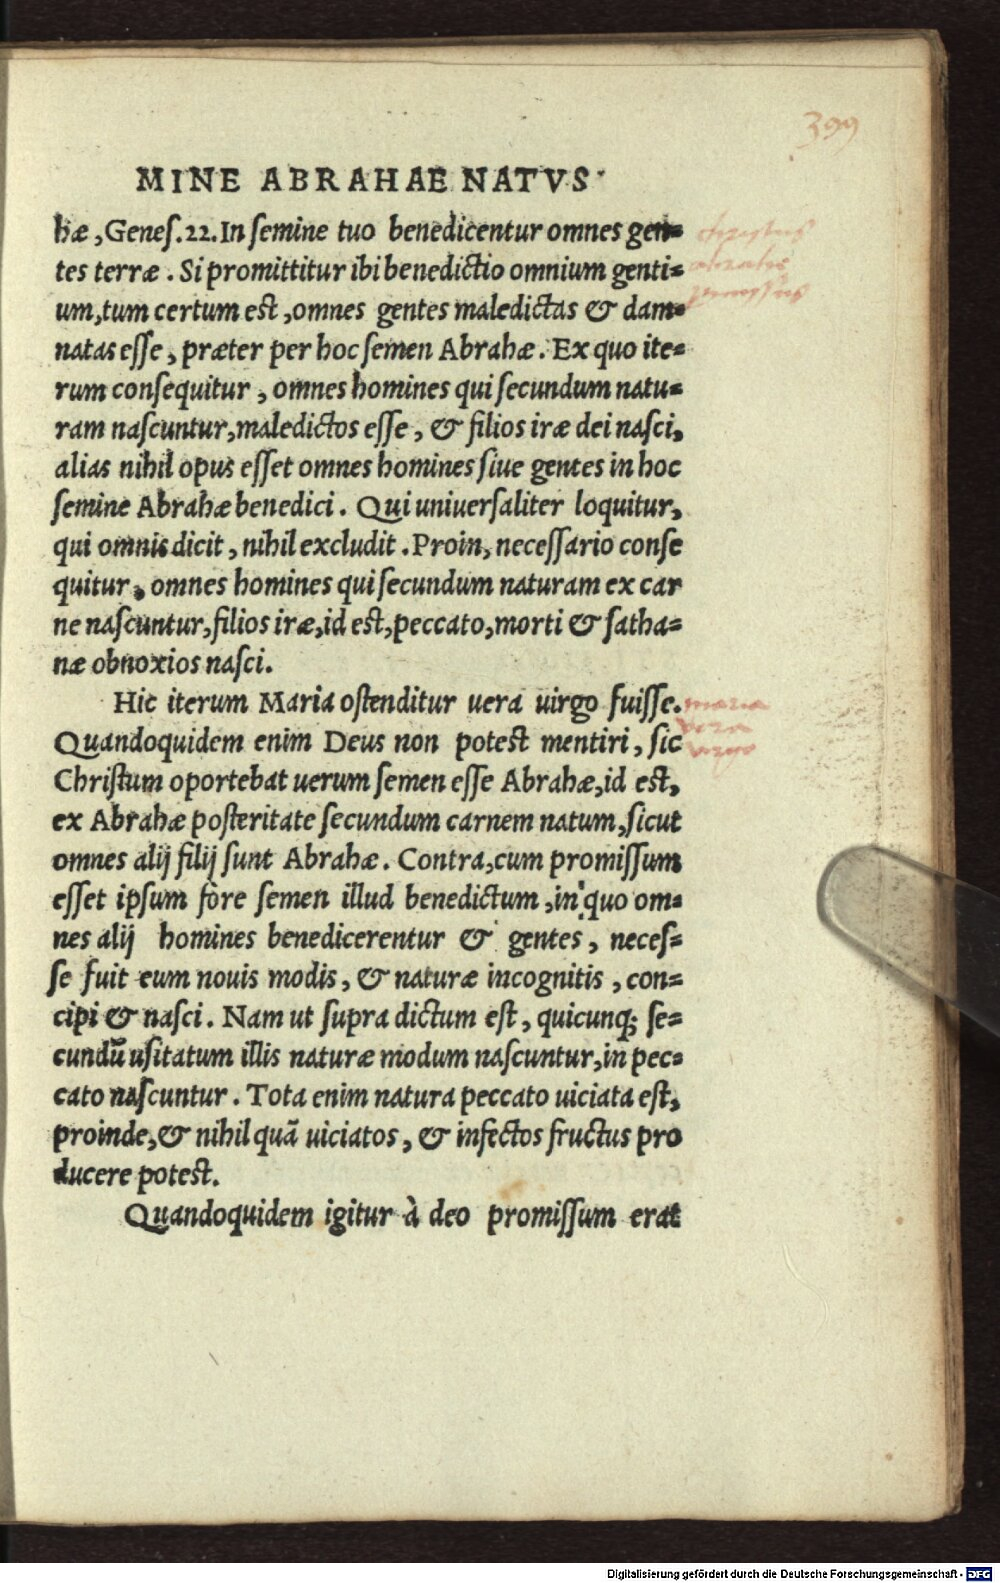 399
MINE ABRAHAE NATVS
hæ, Genes. 22. In semine tuo benedicentur omnes gen=
tes terræ. Si promittitur ibi benedictio omnium genti=
um, tum certum est, omnes gentes maledictas & dam=
natas esse, præter per hoc semen Abrahæ. Ex quo ite=
rum consequitur, omnes homines qui secundum natu=
ram nascuntur, maledictos esse, & filios iræ dei nasci,
alias nihil opus esset omnes homines siue gentes in hoc
semine Abrahæ benedici. Qui uniuersaliter loquitur,
qui omnis dicit, nihil excludit. Proin, necessario conse
quitur, omnes homines qui secundum naturam ex car
ne nascuntur, filios iræ, id est, peccato, morti & satha=
næ obnoxios nasci.
Hic iterum Maria ostenditur uera uirgo fuisse.
maria
vera
virgo
Quandoquidem enim Deus non potest mentiri, sic
Christum oportebat uerum semen esse Abrahæ, id est,
ex Abrahæ posteritate secundum carnem natum, sicut
omnes alij filij sunt Abrahæ. Contra, cum promissum
esset ipsum fore semen illud benedictum, in quo om=
nes alij homines benedicerentur & gentes, neces=
se fuit eum nouis modis, & naturæ incognitis, con=
cipi & nasci. Nam ut supra dictum est, quicunq; se=
cundũ usitatum illis naturæ modum nascuntur, in pec=
cato nascuntur. Tota enim natura peccato uiciata est,
proinde, & nihil quã uiciatos, & infectos fructus pro
ducere potest.
Quandoquidem igitur à deo promissum erat
Digitalisierung gefördert durch die Deutsche Forschungsgemeinschaft - DFG